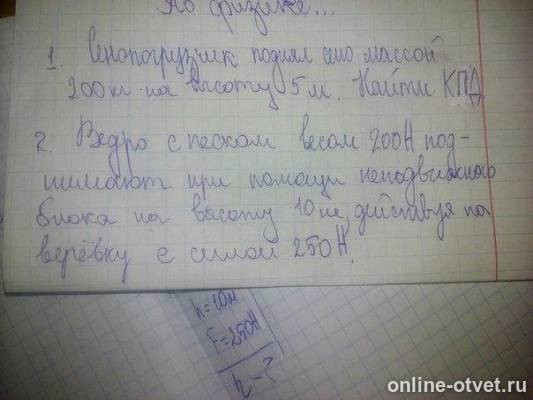 По физике...
1. Сенопогрузчик поднял сено массой
200кг на высоту 5м. Найти КПД
2. Ведро с песком весом 200Н под-
нимают при помощи неподвижного
блока на высоту 10м, действуя на
верёвку с силой 250Н.
h=10м
F=250Н
η-?
online-otvet.ru